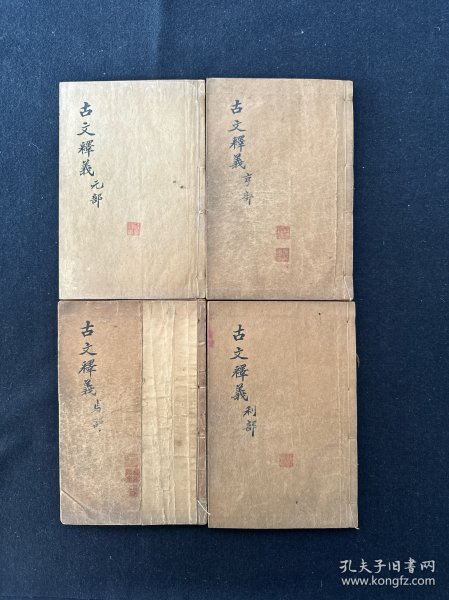 古文釋義 元部
古文釋義 亨部
古文釋義 貞部
古文釋義 利部
孔夫子旧书网
www.kongfz.com